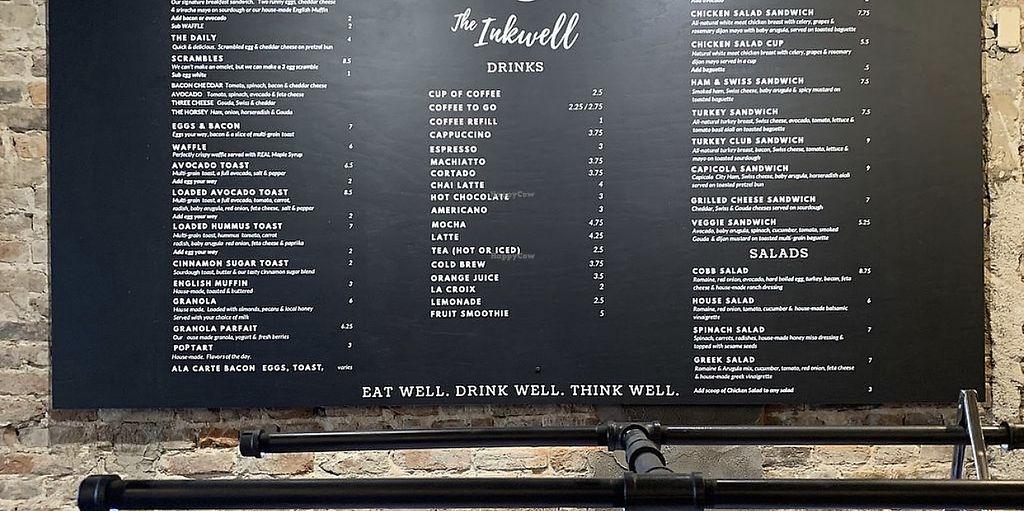 Our signature breakfast sandwich. Two runny eggs, cheddar cheese
& sriracha mayo on sourdough or our house-made English Muffin
Add bacon or avocado 2
Sub WAFFLE 2
THE DAILY 4
Quick & delicious. Scrambled egg & cheddar cheese on pretzel bun
SCRAMBLES 8.5
We can't make an omelet, but we can make a 3 egg scramble
Sub egg white 1
BACON CHEDDAR Tomato, spinach, bacon & cheddar cheese
AVOCADO Tomato, spinach, avocado & feta cheese
THREE CHEESE Gouda, Swiss & cheddar
THE HORSEY Ham, onion, horseradish & Gouda
EGGS & BACON 7
Eggs your way, bacon & a slice of multi-grain toast
WAFFLE 6
Perfectly crispy waffle served with REAL Maple Syrup
AVOCADO TOAST 6.5
Multi-grain toast, a full avocado, salt & pepper
Add egg your way 2
LOADED AVOCADO TOAST 8.5
Multi-grain toast, a full avocado, tomato, carrot,
radish, baby arugula, red onion, feta cheese, salt & pepper
Add egg your way 2
LOADED HUMMUS TOAST 7
Multi-grain toast, hummus tomato, carrot
radish, baby arugula red onion, feta cheese & paprika
Add egg your way 2
CINNAMON SUGAR TOAST 2
Sourdough toast, butter & our tasty cinnamon sugar blend
ENGLISH MUFFIN 3
House-made, toasted & buttered
GRANOLA 6
House made. Loaded with almonds, pecans & local honey
Served with your choice of milk
GRANOLA PARFAIT 6.25
Our ouse made granola, yogurt & fresh berries
POPTART 3
House-made. Flavors of the day.
ALA CARTE BACON EGGS, TOAST, varies
The Inkwell
DRINKS
CUP OF COFFEE 2.5
COFFEE TO GO 2.25 / 2.75
COFFEE REFILL 1
CAPPUCCINO 3.75
ESPRESSO 3
MACHIATTO 3.75
CORTADO 3.75
CHAI LATTE 4
HOT CHOCOLATE 3
AMERICANO 3
MOCHA 4.75
LATTE 4.25
TEA (HOT OR ICED) 2.5
COLD BREW 3.75
ORANGE JUICE 3.5
LA CROIX 2
LEMONADE 2.5
FRUIT SMOOTHIE 5
HappyCow
HappyCow
CHICKEN SALAD SANDWICH 7.75
All-natural white meat chicken breast with celery, grapes &
rosemary dijon mayo with baby arugula, served on toasted baguette
CHICKEN SALAD CUP 5.5
Natural white meat chicken breast with celery, grapes & rosemary
dijon mayo served in a cup
Add baguette .5
HAM & SWISS SANDWICH 7.5
Smoked ham, Swiss cheese, baby arugula & spicy mustard on
toasted baguette
TURKEY SANDWICH 7.5
All-natural turkey breast, Swiss cheese, avocado, tomato, lettuce &
tomato basil aioli on toasted baguette
TURKEY CLUB SANDWICH 9
All-natural turkey breast, bacon, Swiss cheese, tomato, lettuce &
mayo on toasted sourdough
CAPICOLA SANDWICH 9
Capicola City Ham, Swiss cheese, baby arugula, horseradish aioli
served on toasted pretzel bun
GRILLED CHEESE SANDWICH 7
Cheddar, Swiss & Gouda cheeses served on sourdough
VEGGIE SANDWICH 5.25
Avocado, baby arugula, spinach, cucumber, tomato, smoked
Gouda & dijon mustard on toasted multi-grain baguette
SALADS
COBB SALAD 8.75
Romaine, red onion, avocado, hard boiled egg, turkey, bacon, feta
cheese & house-made ranch dressing
HOUSE SALAD 6
Romaine, red onion, tomato, cucumber & house-made balsamic
vinaigrette
SPINACH SALAD 7
Spinach, carrots, radishes, house-made honey miso dressing &
topped with sesame seeds
GREEK SALAD 7
Romaine & Arugula mix, cucumber, tomato, red onion, feta cheese
& house-made greek vinaigrette
Add scoop of Chicken Salad to any salad 3
EAT WELL. DRINK WELL. THINK WELL.